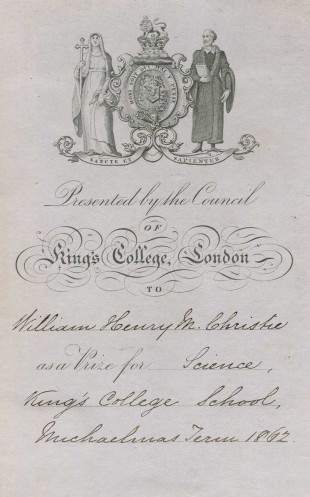 SANCTE ET SAPIENTER
Presented by the Council
OF
King's College, London
TO
William Henry M. Christie
as a Prize for Science,
King's College School,
Michaelmas Term 1862.